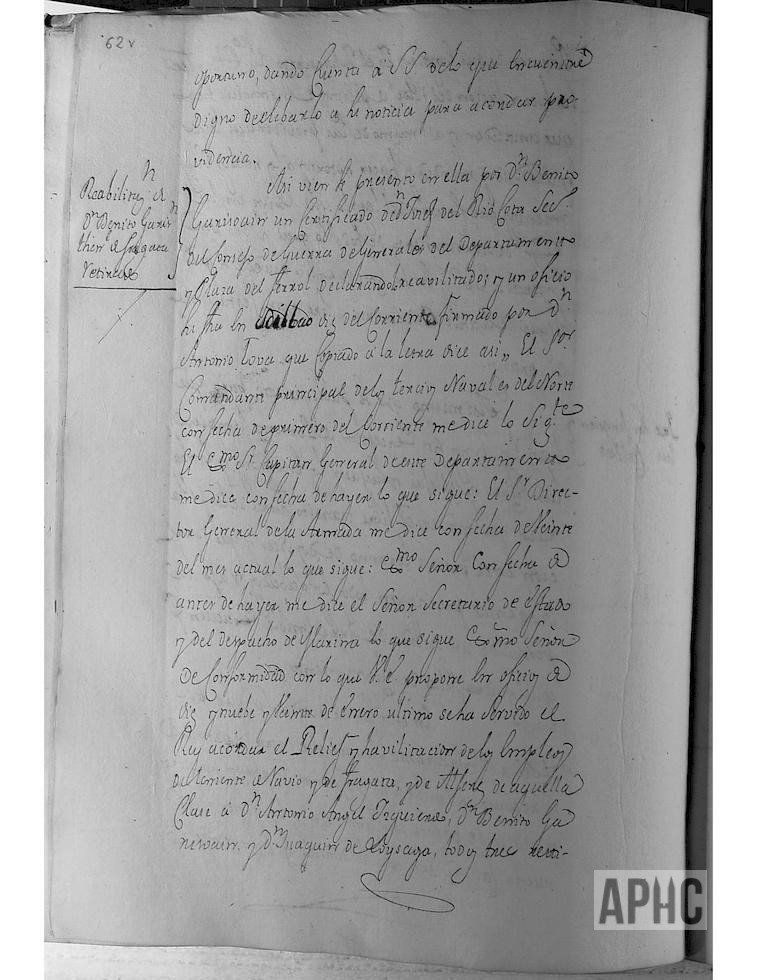 62 v
oportuno, dando Cuenta a SS de lo que
digno de elebarlo a su noticia para acordar pro-
videncia.
Reabilitaz.n de
D.n Benito Garis
thien.e de fragata
Retirado
Asi vien se presento en ella por D.n Benito
Garisoain un Certificado de D.n Josef del Rio Cota Sec.o
del Consejo de Guerra de Generales del Departamento
y Plaza del Ferrol declarandole reavilitado; y un oficio
su fha en Bilbao diez del Corriente firmado por D.n
Antonio Tova que Copiado a la letra dice asi,, El S.or
Comandante principal de los tercios Navales del Norte
con fecha de primero del Corriente me dice lo sig.te
El Exmo Sr. Capitan General de este Departamento
me dice con fecha de hayer lo que sigue: El S.r Direc-
tor General de la Armada me dice con fecha de Veinte
del mes actual lo que sigue: Exmo Señor Con fecha de
antes de hayer me dice el Señor Secretario de estado
y del despacho de Marina lo que sigue Exmo Señor
De Conformidad con lo que V.E. propone en oficios de
diez y nueve y Veinte de Enero ultimo se ha Servido el
Rey acordar el Relief y havilitacion de los Empleos
de teniente de Navio y de fragata, y de Alferez de aquella
Clase a D.n Antonio Angel Izquierdo, D.n Benito Ga
risoain, y D.n Juaquin de Loysaga, todos tres reti-
APHC